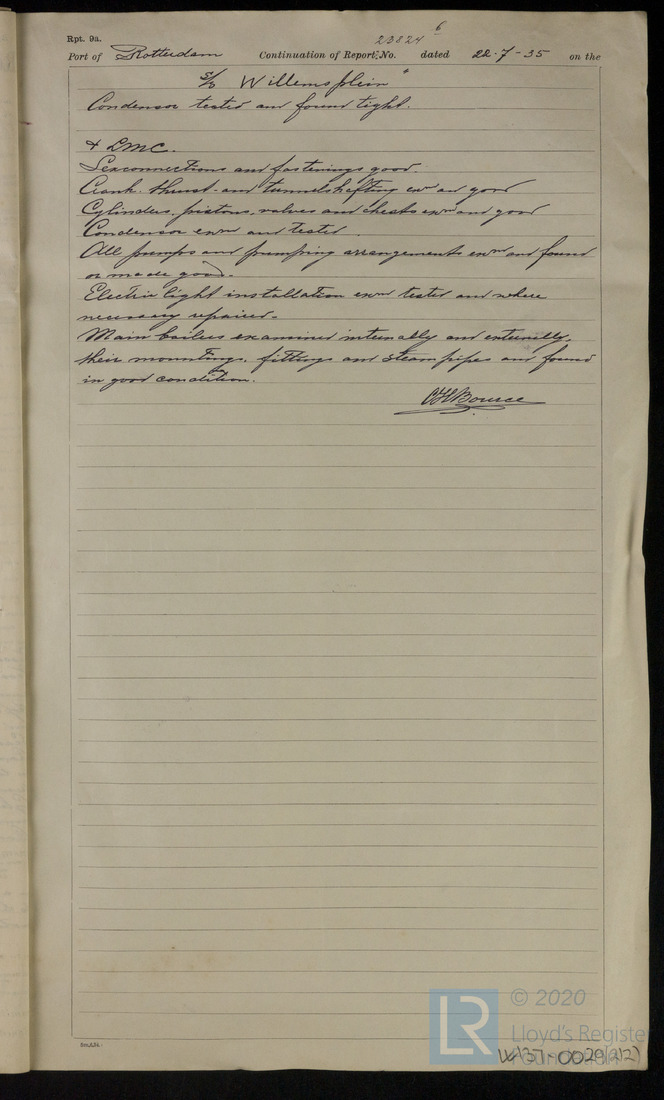 Rpt. 9a.
23824 6
Port of Rotterdam Continuation of Report No. dated 22-7-35 on the
s/s Willemsplein"
Condensor tested and found tight.
+ LMC.
Seaconnections and fastenings good.
Crank. thrust- and tunnelshafting exm and good
Cylinders, pistons, valves and chests exm and good
Condensor exm and tested.
All pumps and pumping arrangements exm and found
or made good.
Electric light installation exm tested and where
necessary repaired.
Main boilers examined internally and externally,
their mountings, fittings and steam pipes and found
in good condition.
© 2020
Lloyd's Register
Foundation
W137-0029(2/2)